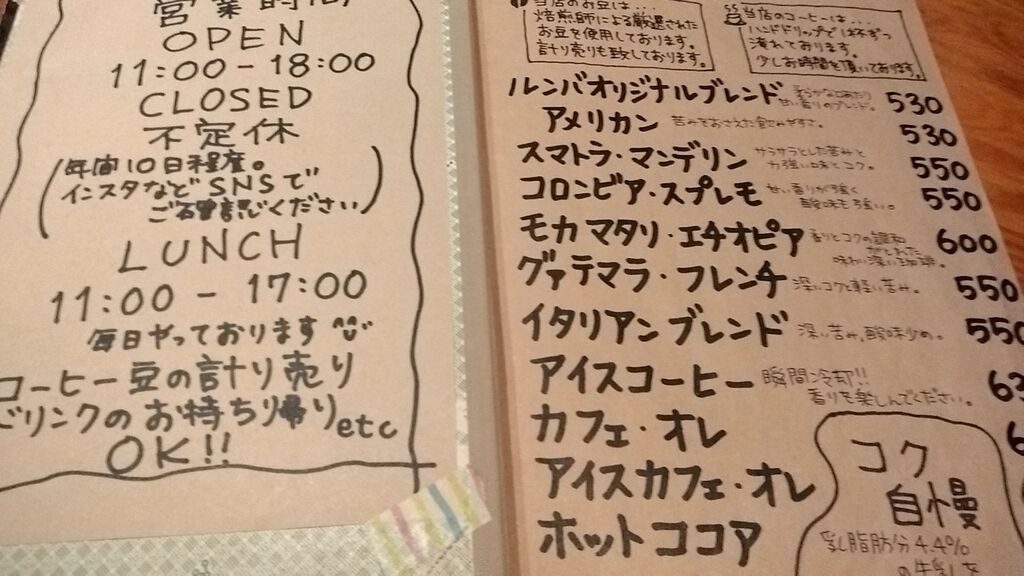 営業時間
OPEN
11:00-18:00
CLOSED
不定休
(年間10日程度。
インスタなどSNSで
ご確認ください)
LUNCH
11:00 - 17:00
毎日やっております
コーヒー豆の計り売り
ドリンクのお持ち帰りetc
OK!!
当店のお豆は...
焙煎師による厳選された
お豆を使用しております。
計り売りも致しております。
当店のコーヒーは...
ハンドドリップで1杯ずつ
淹れております。
少しお時間を頂いております。
ルンバオリジナルブレンド 530
甘い香りのブレンド。
アメリカン 苦みをおさえた飲みやすさ。 530
スマトラ・マンデリン サラサラとした苦みと 550
力強い味とコク。
コロンビア・スプレモ 甘い香りが強く 550
酸味も強い。
モカマタリ・エチオピア 香りとコクの調和 600
味わい深い珈琲。
グァテマラ・フレンチ 深いコクと軽い苦み。 550
イタリアンブレンド 深い苦み、酸味少め。 550
アイスコーヒー 瞬間冷却!! 63
香りを楽しんでください。
カフェ・オレ 6
アイスカフェ・オレ
ホットココア
コク
自慢
乳脂肪分4.4%
の牛乳を